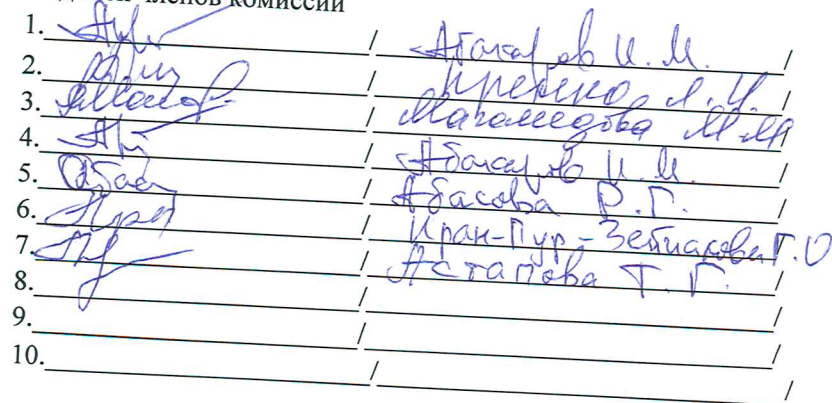 членов комиссии
1. / Абакаров И. М. /
2. / /
3. / Магомедова М. М /
4. / Абакаров И. М. /
5. / Абасова Р. Г. /
6. / Иран-Пур- Г. О
7. / Астапова Т. Г. /
8. / /
9. / /
10. / /